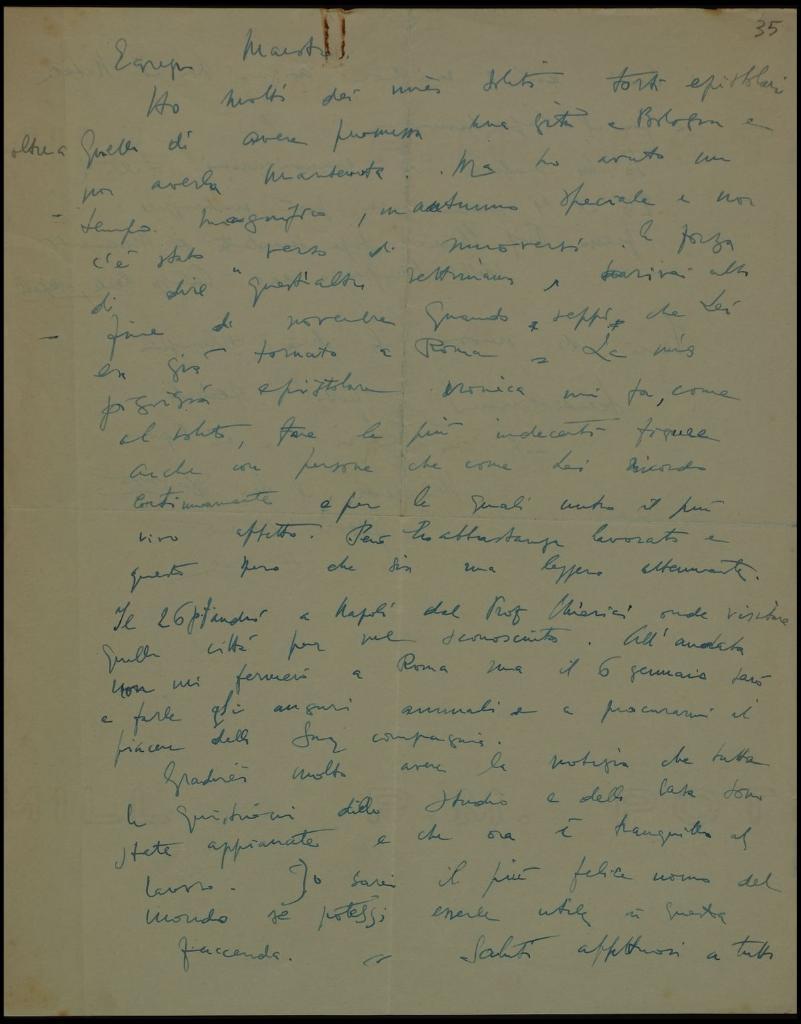 35
Egregio Maestro,
Ho molti dei miei soliti torti epistolari
oltre a quello di avere promessa una gita a Bologna e
non averla mantenuta. Ma ho avuto un
tempo magnifico, un autunno speciale e non
c'è stato verso di muoversi. A forza
di dire "quest'altra settimana", arrivai alla
fine di novembre quando seppi che Lei
era già tornato a Roma. La mia
pigrizia epistolare cronica mi fa, come
al solito, fare le più indecenti figure
anche con persone che come Lei ricordo
continuamente e per le quali nutro il più
vivo affetto. Però ho abbastanza lavorato e
questo spero che sia una leggera attenuante.
Il 26 andrò a Napoli dal Prof Chierici onde visitare
quella città per me sconosciuta. All'andata
non mi fermerò a Roma ma il 6 gennaio sarò
a farle gli auguri annuali e a procurarmi il
piacere della Sua compagnia.
Gradirei molto avere la notizia che tutte
le questioni dello studio e della casa sono
state appianate e che ora è tranquillo al
lavoro. Io sarei il più felice uomo del
mondo se potessi esserle utile in questa
faccenda. Saluti affettuosi a tutti